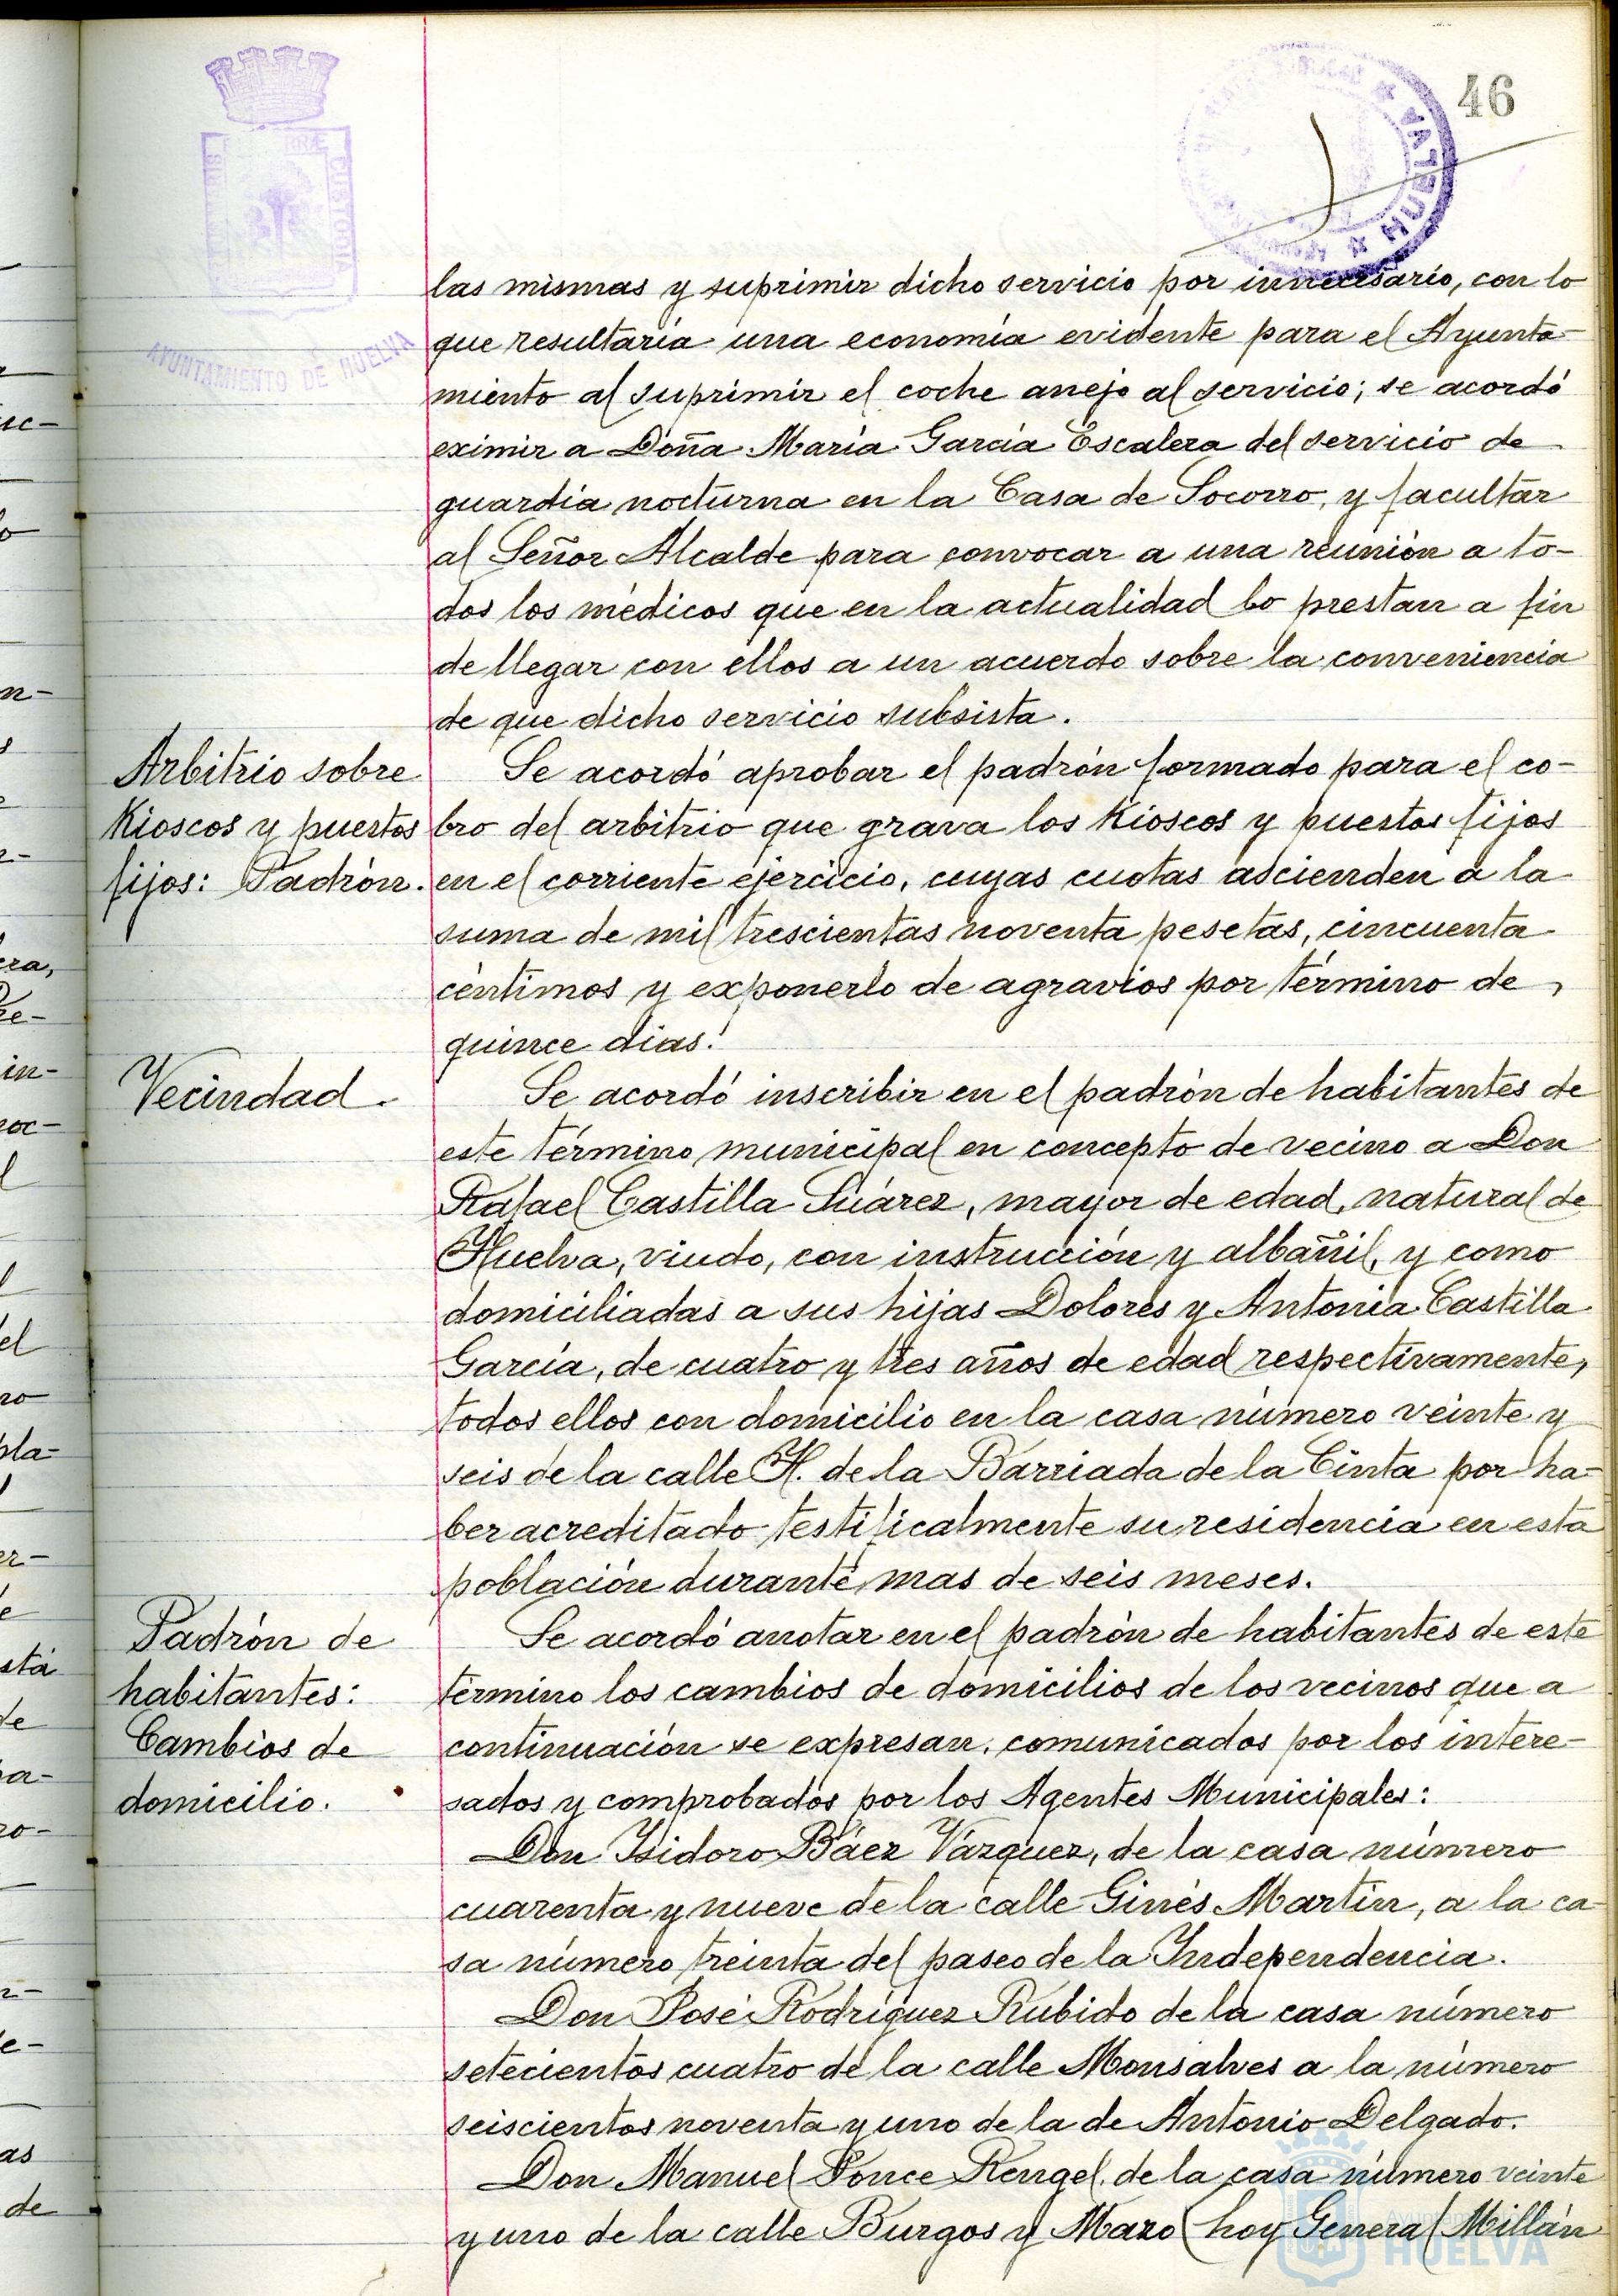 46
HUELVA
CUSTODIA
AYUNTAMIENTO DE HUELVA
las mismas y suprimir dicho servicio por innecesario, con lo
que resultaría una economía evidente para el Ayunta-
miento al suprimir el coche anejo al servicio; se acordó
eximir a Doña María García Escalera del servicio de
guardia nocturna en la Casa de Socorro, y facultar
al Señor Alcalde para convocar a una reunión a to-
dos los médicos que en la actualidad lo prestan a fin
de llegar con ellos a un acuerdo sobre la conveniencia
de que dicho servicio subsista.
Arbitrio sobre
Kioscos y puestos
fijos: Padrón.
Se acordó aprobar el padrón formado para el co-
bro del arbitrio que grava los Kioscos y puestos fijos
en el corriente ejercicio, cuyas cuotas ascienden a la
suma de mil trescientas noventa pesetas, cincuenta
céntimos y exponerlo de agravios por término de
quince dias.
Vecindad.
Se acordó inscribir en el padrón de habitantes de
este término municipal en concepto de vecino a Don
Rafael Castilla Suárez, mayor de edad, natural de
Huelva, viudo, con instrucción y albañil, y como
domiciliadas a sus hijas Dolores y Antonia Castilla
García, de cuatro y tres años de edad respectivamente,
todos ellos con domicilio en la casa número veinte y
seis de la calle H. de la Barriada de la Cinta por ha-
ber acreditado testificalmente su residencia en esta
población durante mas de seis meses.
Padrón de
habitantes:
Cambios de
domicilio.
Se acordó anotar en el padrón de habitantes de este
término los cambios de domicilios de los vecinos que a
continuación se expresan, comunicados por los intere-
sados y comprobados por los Agentes Municipales:
Don Isidoro Báez Vázquez, de la casa número
cuarenta y nueve de la calle Ginés Martín, a la ca-
sa número treinta del paseo de la Independencia.
Don José Rodríguez Rubido de la casa número
setecientos cuatro de la calle Monsalves a la número
seiscientos noventa y uno de la de Antonio Delgado.
Don Manuel Ponce Rengel, de la casa número veinte
y uno de la calle Burgos y Mazo (hoy General Millán
HUELVA